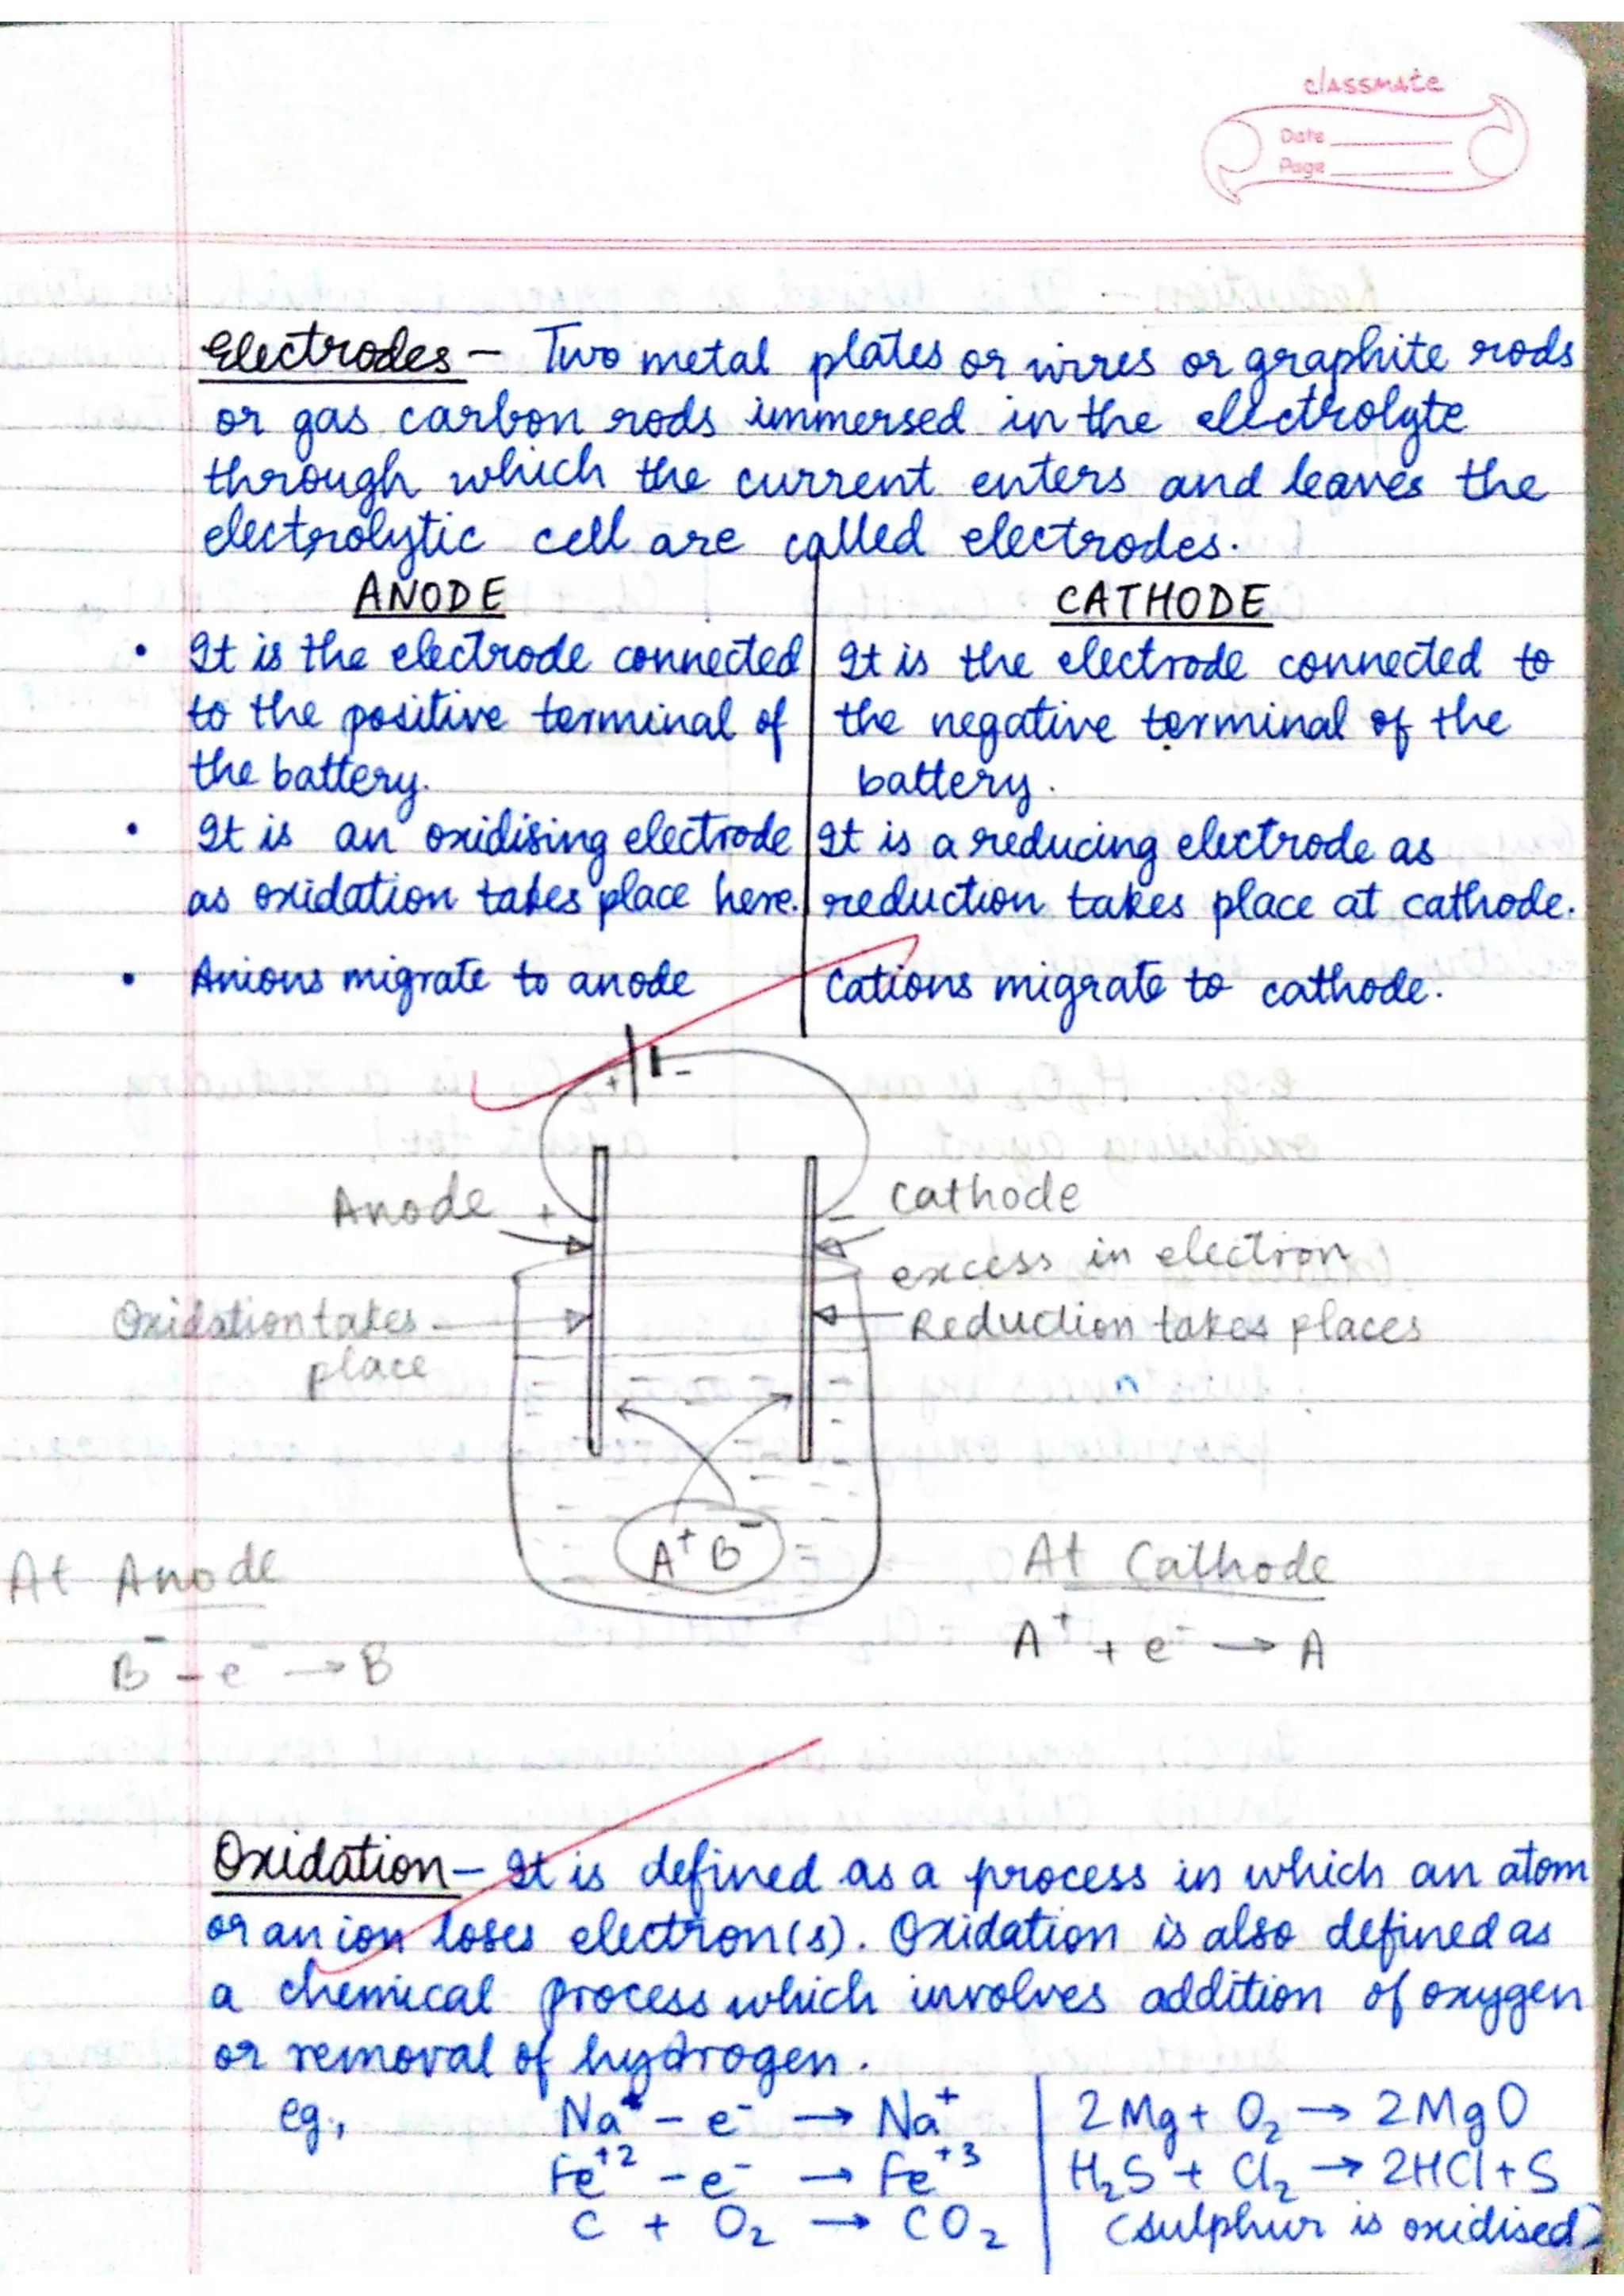 classmate
Date
Page
Electrodes - Two metal plates or wires or graphite rods
or gas carbon rods immersed in the electrolyte
through which the current enters and leaves the
electrolytic cell are called electrodes.
ANODE
• It is the electrode connected
to the positive terminal of
the battery.
• It is an oxidising electrode
as oxidation takes place here.
• Anions migrate to anode
CATHODE
It is the electrode connected to
the negative terminal of the
battery.
It is a reducing electrode as
reduction takes place at cathode.
Cations migrate to cathode.
+ -
Anode +
- Cathode
excess in electron
Oxidation takes
place
Reduction takes places
A⁺ B⁻
At Anode
B⁻ - e⁻ → B
At Cathode
A⁺ + e⁻ → A
Oxidation - It is defined as a process in which an atom
or an ion loses electron(s). Oxidation is also defined as
a chemical process which involves addition of oxygen
or removal of hydrogen.
eg., Na - e⁻ → Na⁺
Fe⁺² - e⁻ → Fe⁺³
C + O₂ → CO₂
2Mg + O₂ → 2MgO
H₂S + Cl₂ → 2HCl + S
(sulphur is oxidised)